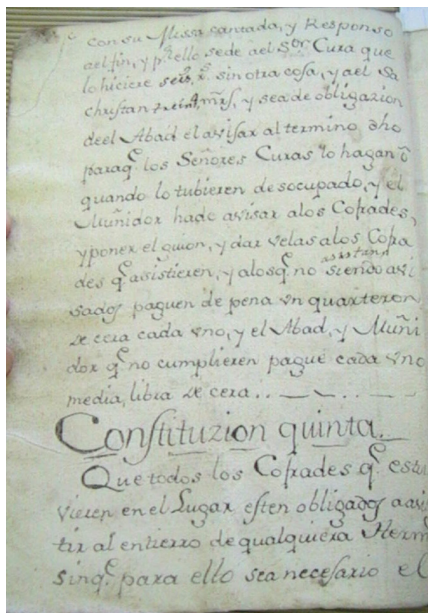 con su Missa cantada, y Responso
al fin, y pr. ello se de al Sor. Cura que
lo hiciere seis rs. sin otra cosa, y al Sa
christan mrs, y sea de obligazion
del Abad el avisar al termino dho
paraq. los Señores Curas lo hagan õ
quando lo tubieren desocupado, y el
Muñidor ha de avisar a los Cofrades,
y poner el guion, y dar velas a los Cofra
des q. asistieren, y a los q. no asistan siendo avi
sados paguen de pena vn quarteron
de cera cada vno, y el Abad, y Muñi
dor q. no cumplieren pague cada vno
media libra de cera..
Constituzion quinta.
Que todos los Cofrades q. estu
vieren en el Lugar esten obligados a asis
tir al entierro de qualquiera Herm
sinq. para ello sea necesario el